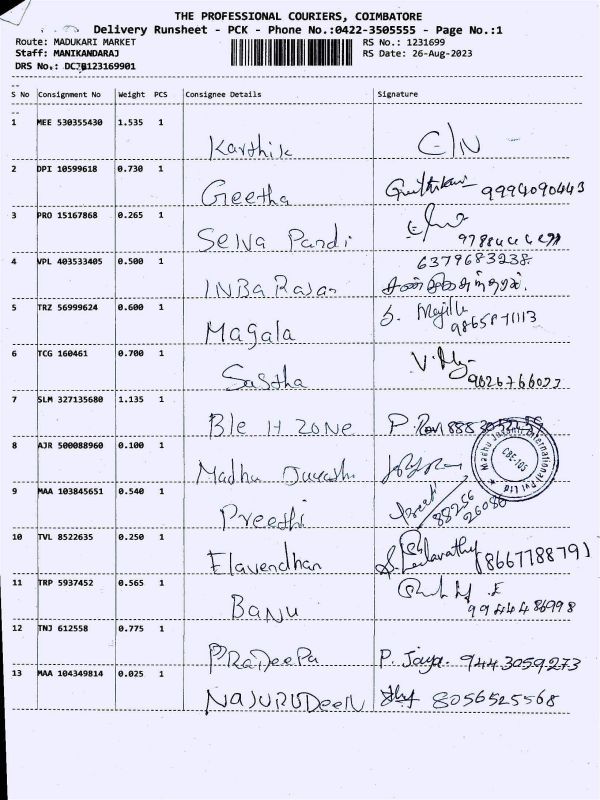 THE PROFESSIONAL COURIERS, COIMBATORE
Delivery Runsheet - PCK - Phone No.:0422-3505555 - Page No.:1
Route: MADUKARI MARKET RS No.: 1231699
Staff: MANIKANDARAJ RS Date: 26-Aug-2023
DRS No.:
S No Consignment No Weight PCS Consignee Details Signature
1 MEE 530355430 1.535 1 Karthik C/N
2 DPI 10599618 0.730 1 Geetha 9994090443
3 PRO 15167868 0.265 1 Selva Pandi
4 VPL 403533405 0.500 1 INBA Rajan 6379683238
5 TRZ 56999624 0.600 1 Magala 9865871113
6 TCG 160461 0.700 1 Sastha
7 SLM 327135680 1.135 1 Ble H ZONE
8 AJR 500088960 0.100 1 Madhu Jayanthi
Madhu Jayanthi International Pvt Ltd
CBE-105
9 MAA 103845651 0.540 1 Preethi Preeti 88256
26086
10 TVL 8522635 0.250 1 Elavendhan S. Leelavathy (8667788791)
11 TRP 5937452 0.565 1 BANU
9944486998
12 TNJ 612558 0.775 1 PRaDeePa P. Jaya. 9443059273
13 MAA 104349814 0.025 1 NAJURUDeeN 8056525568